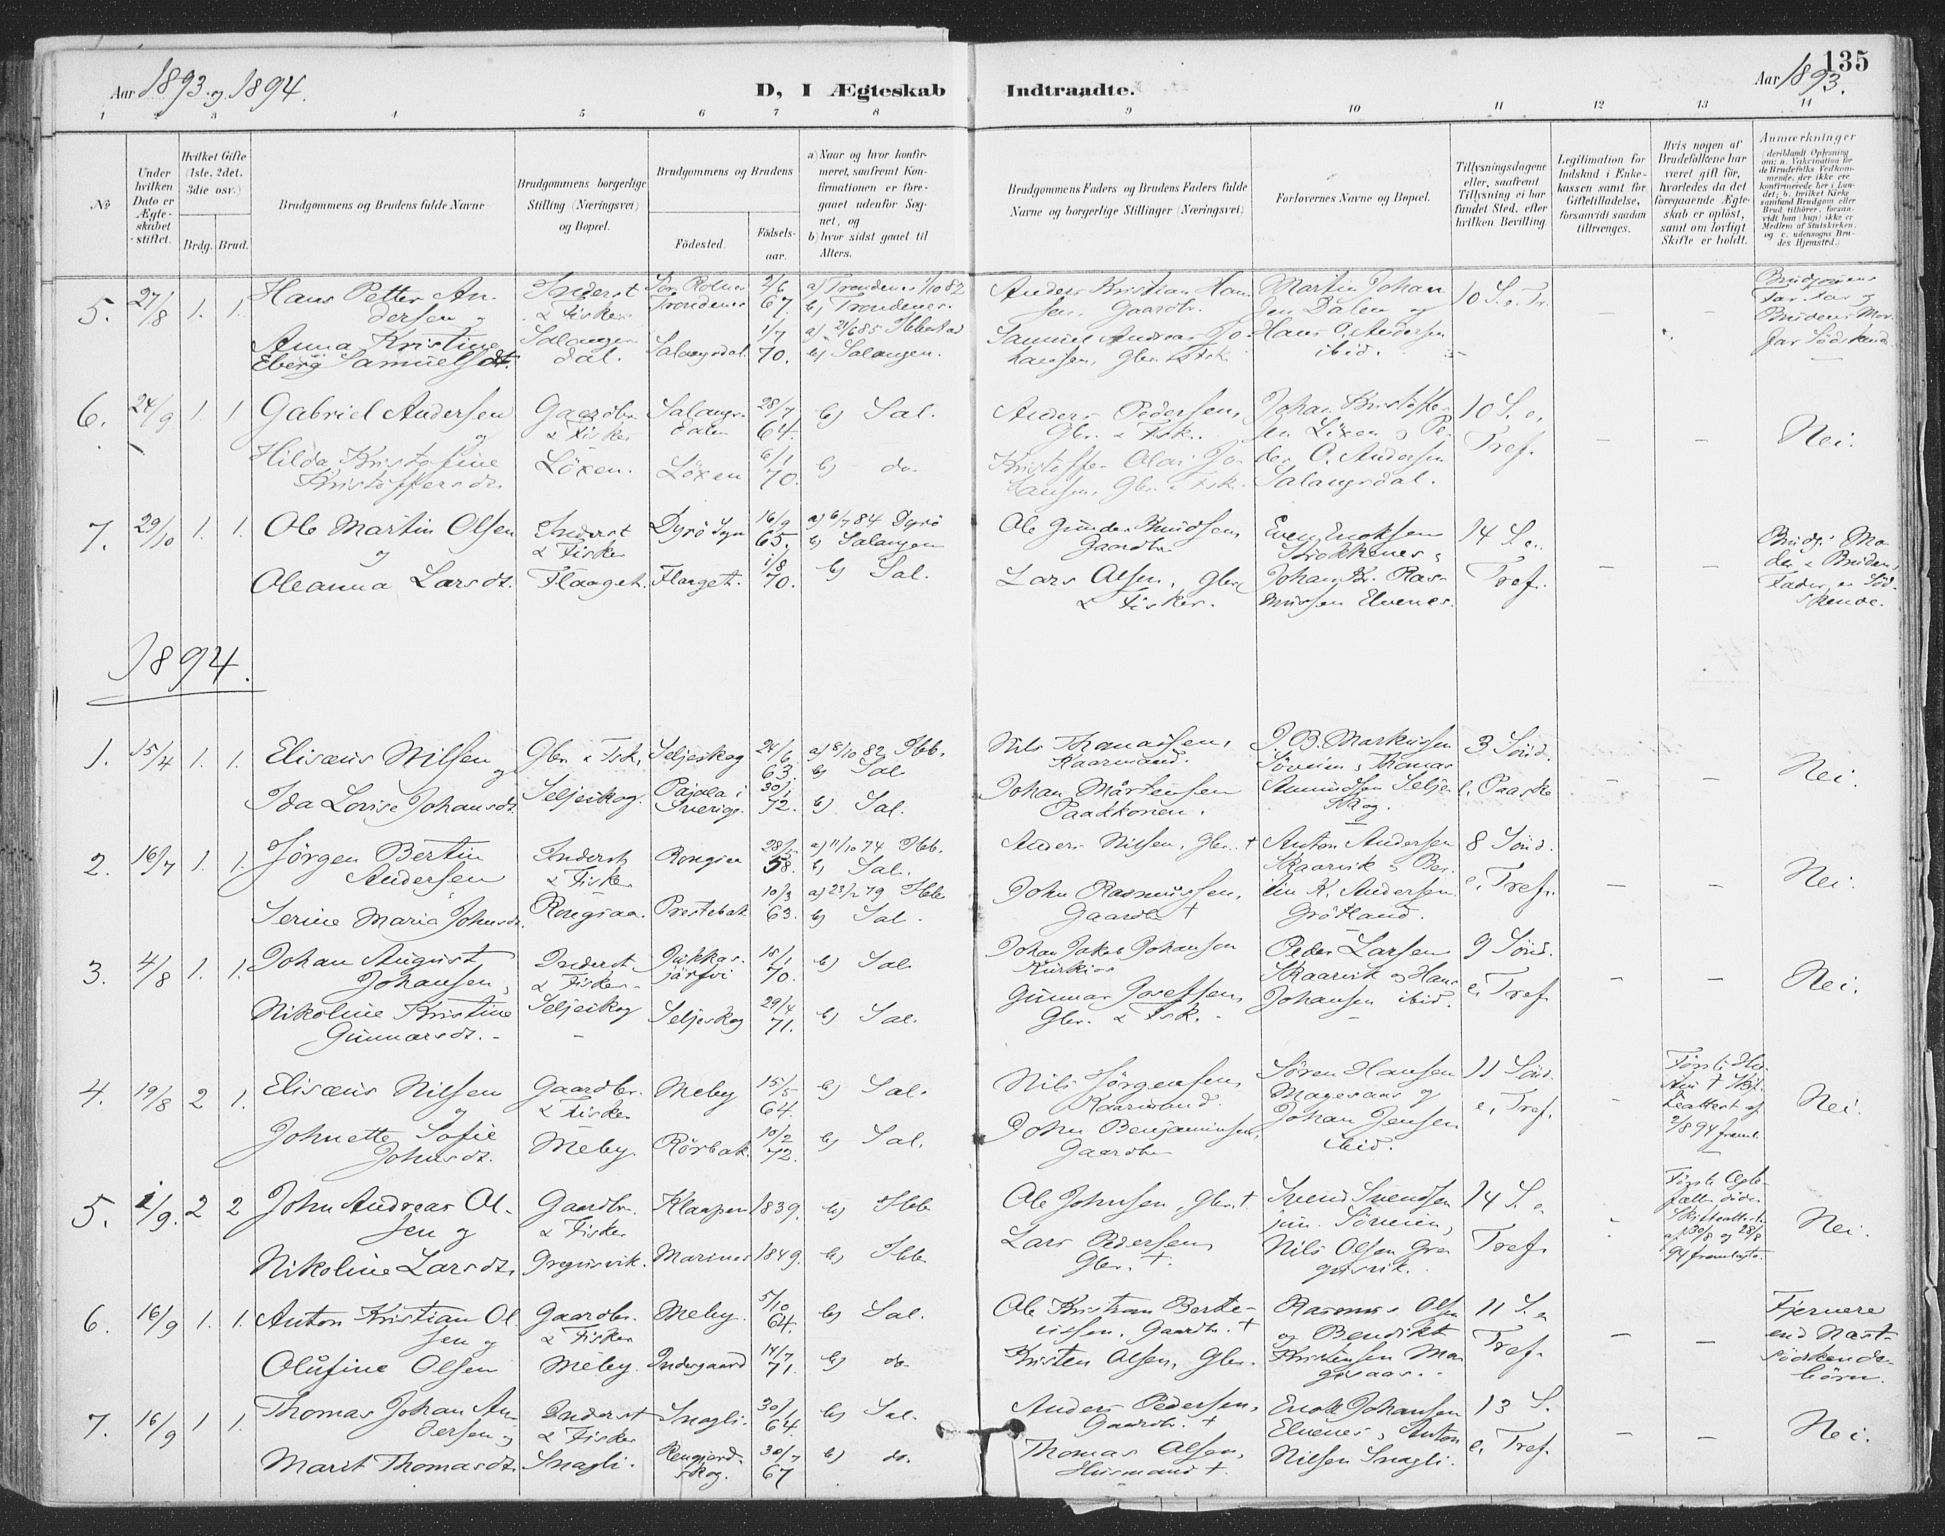 135
Aar 1893 og 1894.
D, I Ægteskab Indtraadte.
Aar 1893.
1 2 3 4 5 6 7 8 9 10 11 12 13 14
No
Under hvilken Dato er Ægteskabet stiftet.
Hvilket Gifte (1ste, 2det, 3die osv.)
Brdg. Brud.
Brudgommens og Brudens fulde Navne
Brudgommens borgerlige Stilling (Næringsvei) og Bopæl.
Brudgommens og Brudens
Fødested.
Fødselsaar.
a) Naar og hvor konfirmeret, saafremt Konfirmationen er foregaaet udenfor Sognet, og
b) hvor sidst gaaet til Alters.
Brudgommens Faders og Brudens Faders fulde Navne og borgerlige Stillinger (Næringsvei)
Forlovernes Navne og Bopæl.
Tillysningsdagene eller, saafremt Tillysning ei har fundet Sted, efter hvilken Bevilling.
Legitimation for Indskud i Enkekassen samt for Giftetilladelse, forsaavidt saadan tiltrænges.
Hvis nogen af Brudefolkene har været gift før, hvorledes da det foregaaende Ægteskab er opløst, samt om lovligt Skifte er holdt.
Anmærkninger
5. 27/8 1. 1.
Hans Petter Andersen og
Anna Kristine Eberg Samuelsdt.
Inderst & Fisker
Salangsdal.
Trondenes
Salangsdal.
2/6 67.
1/7 70.
a) Trondenes 1/10 82
b) Trondenes.
a) 21/6 85 Ibbestad
b) Salangen.
Anders Kristian Hansen, Gaardbr.
Samuel Andreas Johansen, Gbr. & Fisk.
Martin Johansen Dalen og
Hans O. Andersen ibid.
10 S. e. Tr.
Brudgommens Far Far og Brudens Mor Far Södskend
6. 24/9 1. 1.
Gabriel Andersen og
Hilda Kristofine Kristoffersdt.
Gaardbr. & Fisker
Löxen.
Salangsdalen
Löxen
28/7 64.
6/1 70.
b) Sal.
b) do.
Anders Pedersen, Gbr. & Fisk.
Kristoffer Olai Johansen, Gbr. & Fisk.
Johan Kristoffersen Löxen og Peder O. Andersen Salangsdal.
10 S. e. Tref.
– – Nei.
7. 29/10 1. 1.
Ole Martin Olsen og
Oleanna Larsdt.
Inderst & Fisker
Flaaget.
Dyrö Sogn
Flaaget.
16/9 65.
1/8 70.
a) 6/7 84 Dyrö
b) Salangen
b) Sal.
Ole Gunder Knudsen, Gaardbr
Lars Olsen, Gbr. & Fisker.
Even Enoksen Strokkenes &
Johan Kr. Rasmussen Elvenes.
14 S. e. Tref.
– –
Brudg. Moder & Brudens Fader er Södskende.
1894.
1. 15/4 1. 1.
Elisæus Nilsen og
Ida Lovise Johansdt.
Gbr. & Fisk.
Seljeskog.
Seljeskog
Pajala i Sverige.
24/6 63.
30/1 72.
a) 8/10 82 Ibb.
b) Sal
b) Sal.
Nils Thomassen, Kaarmand.
Johan Mårtensen Paakkonen.
J. B. Markussen Söveien & Thomas Amundsen Seljeskog.
3 Sönd. e. Paaske
– – Nei.
2. 16/7 1. 1.
Jörgen Bertin Andersen
Serine Maria Johnsdt.
Inderst & Fisker
Rongsaa.
Rongsaa
Prestebak
58.
10/3 63.
a) 11/10 74 Ibb.
b) Sal.
a) 23/2 79 Ibb
b) Sal.
Anders Nilsen, Gbr. +
John Rasmussen, Gaardbr +
Anton Andersen Skaarvik & Bertin K. Andersen Grötland.
8 Sönd. e. Tref.
– – Nei.
3. 4/8 1. 1.
Johan August Johansen,
Nikoline Kristine Gunnarsdt.
Inderst & Fisker
Seljeskog
Jukkasjärfvi
Seljeskog
18/1 70.
29/4 71.
b) Sal.
b) Sal.
Johan Jakob Johanson Kurkios
Gunnar Josefsen, Gbr. & Fisk.
Peder Larsen Skaarvik og Hans Johansen ibid.
9 Sönd. e. Tref.
– – Nei.
4. 19/8 2 1.
Elisæus Nilsen og
Johnette Sofie Johnsdt.
Gaardbr. & Fisker
Meby.
Meby
Rörbak.
15/5 64.
10/2 72.
b) Sal.
b) Sal.
Nils Jörgensen, Kaarmand.
John Benjaminsen, Gaardbr
Sören Hansen Magesaas og
Johan Jensen ibid.
11 Sönd. e. Tref.
Nei.
5. 2/9. 2 2
John Andreas Olsen og
Nikoline Larsdt.
Gaardbr. & Fisker
Gregusvik.
Klaapen
Marines
1839.
1849.
b) Ibb
b) Ibb
Ole Johnsen, Gbr. +
Lars Pedersen, Gbr. +.
Svend Svendsen jun. Söveien,
Nils Olsen Gregusvik.
14 S. e. Tref.
Skifteattester af 30/8 og 28/8 94 fremlagte.
Nei.
6. 16/9 1. 1.
Anton Kristian Olsen og
Olufine Olsen
Gaardbr. & Fisker
Meby.
Meby.
Indergaard
5/10 64.
14/7 71.
b) Sal.
b) do.
Ole Kristian Berteussen, Gaardbr. +
Kristen Olsen, Gbr.
Rasmus Olsen og Bendikt Kristensen Magesaas.
11 S. e. Tref.
– –
Fjernere end Næstsödskendebörn.
7. 16/9 1 1.
Thomas Johan Andersen og
Marit Thomasdt.
Inderst & Fisker
Snagli.
Snagli.
30/1 64.
30/7 67
b) Sal.
b) do.
Anders Pedersen, Gaardbr. +
Thomas Olsen, Husmand +.
Enok Johansen Elvenes, Anton Nilsen Snagli.
13 S. e. Tref.
– – Nei.